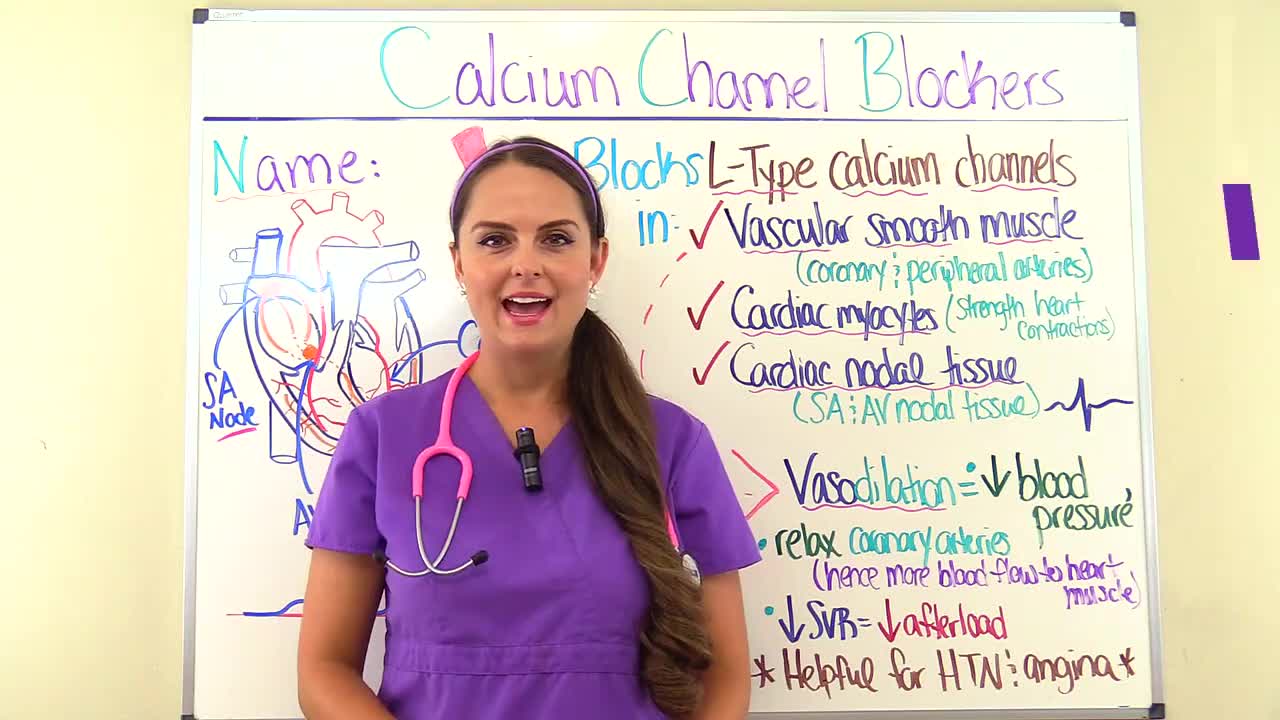 Calcium Channel Blockers
Name:
SA
Node
Blocks L-Type calcium channels
in: ✓ Vascular smooth muscle
(coronary & peripheral arteries)
✓ Cardiac myocytes (strength heart
contractions)
✓ Cardiac nodal tissue
(SA & AV nodal tissue)
Vasodilation = ↓ blood
pressure
• relax coronary arteries
(hence more blood flow to heart
muscle)
• ↓ SVR = ↓ afterload
* Helpful for HTN & angina *